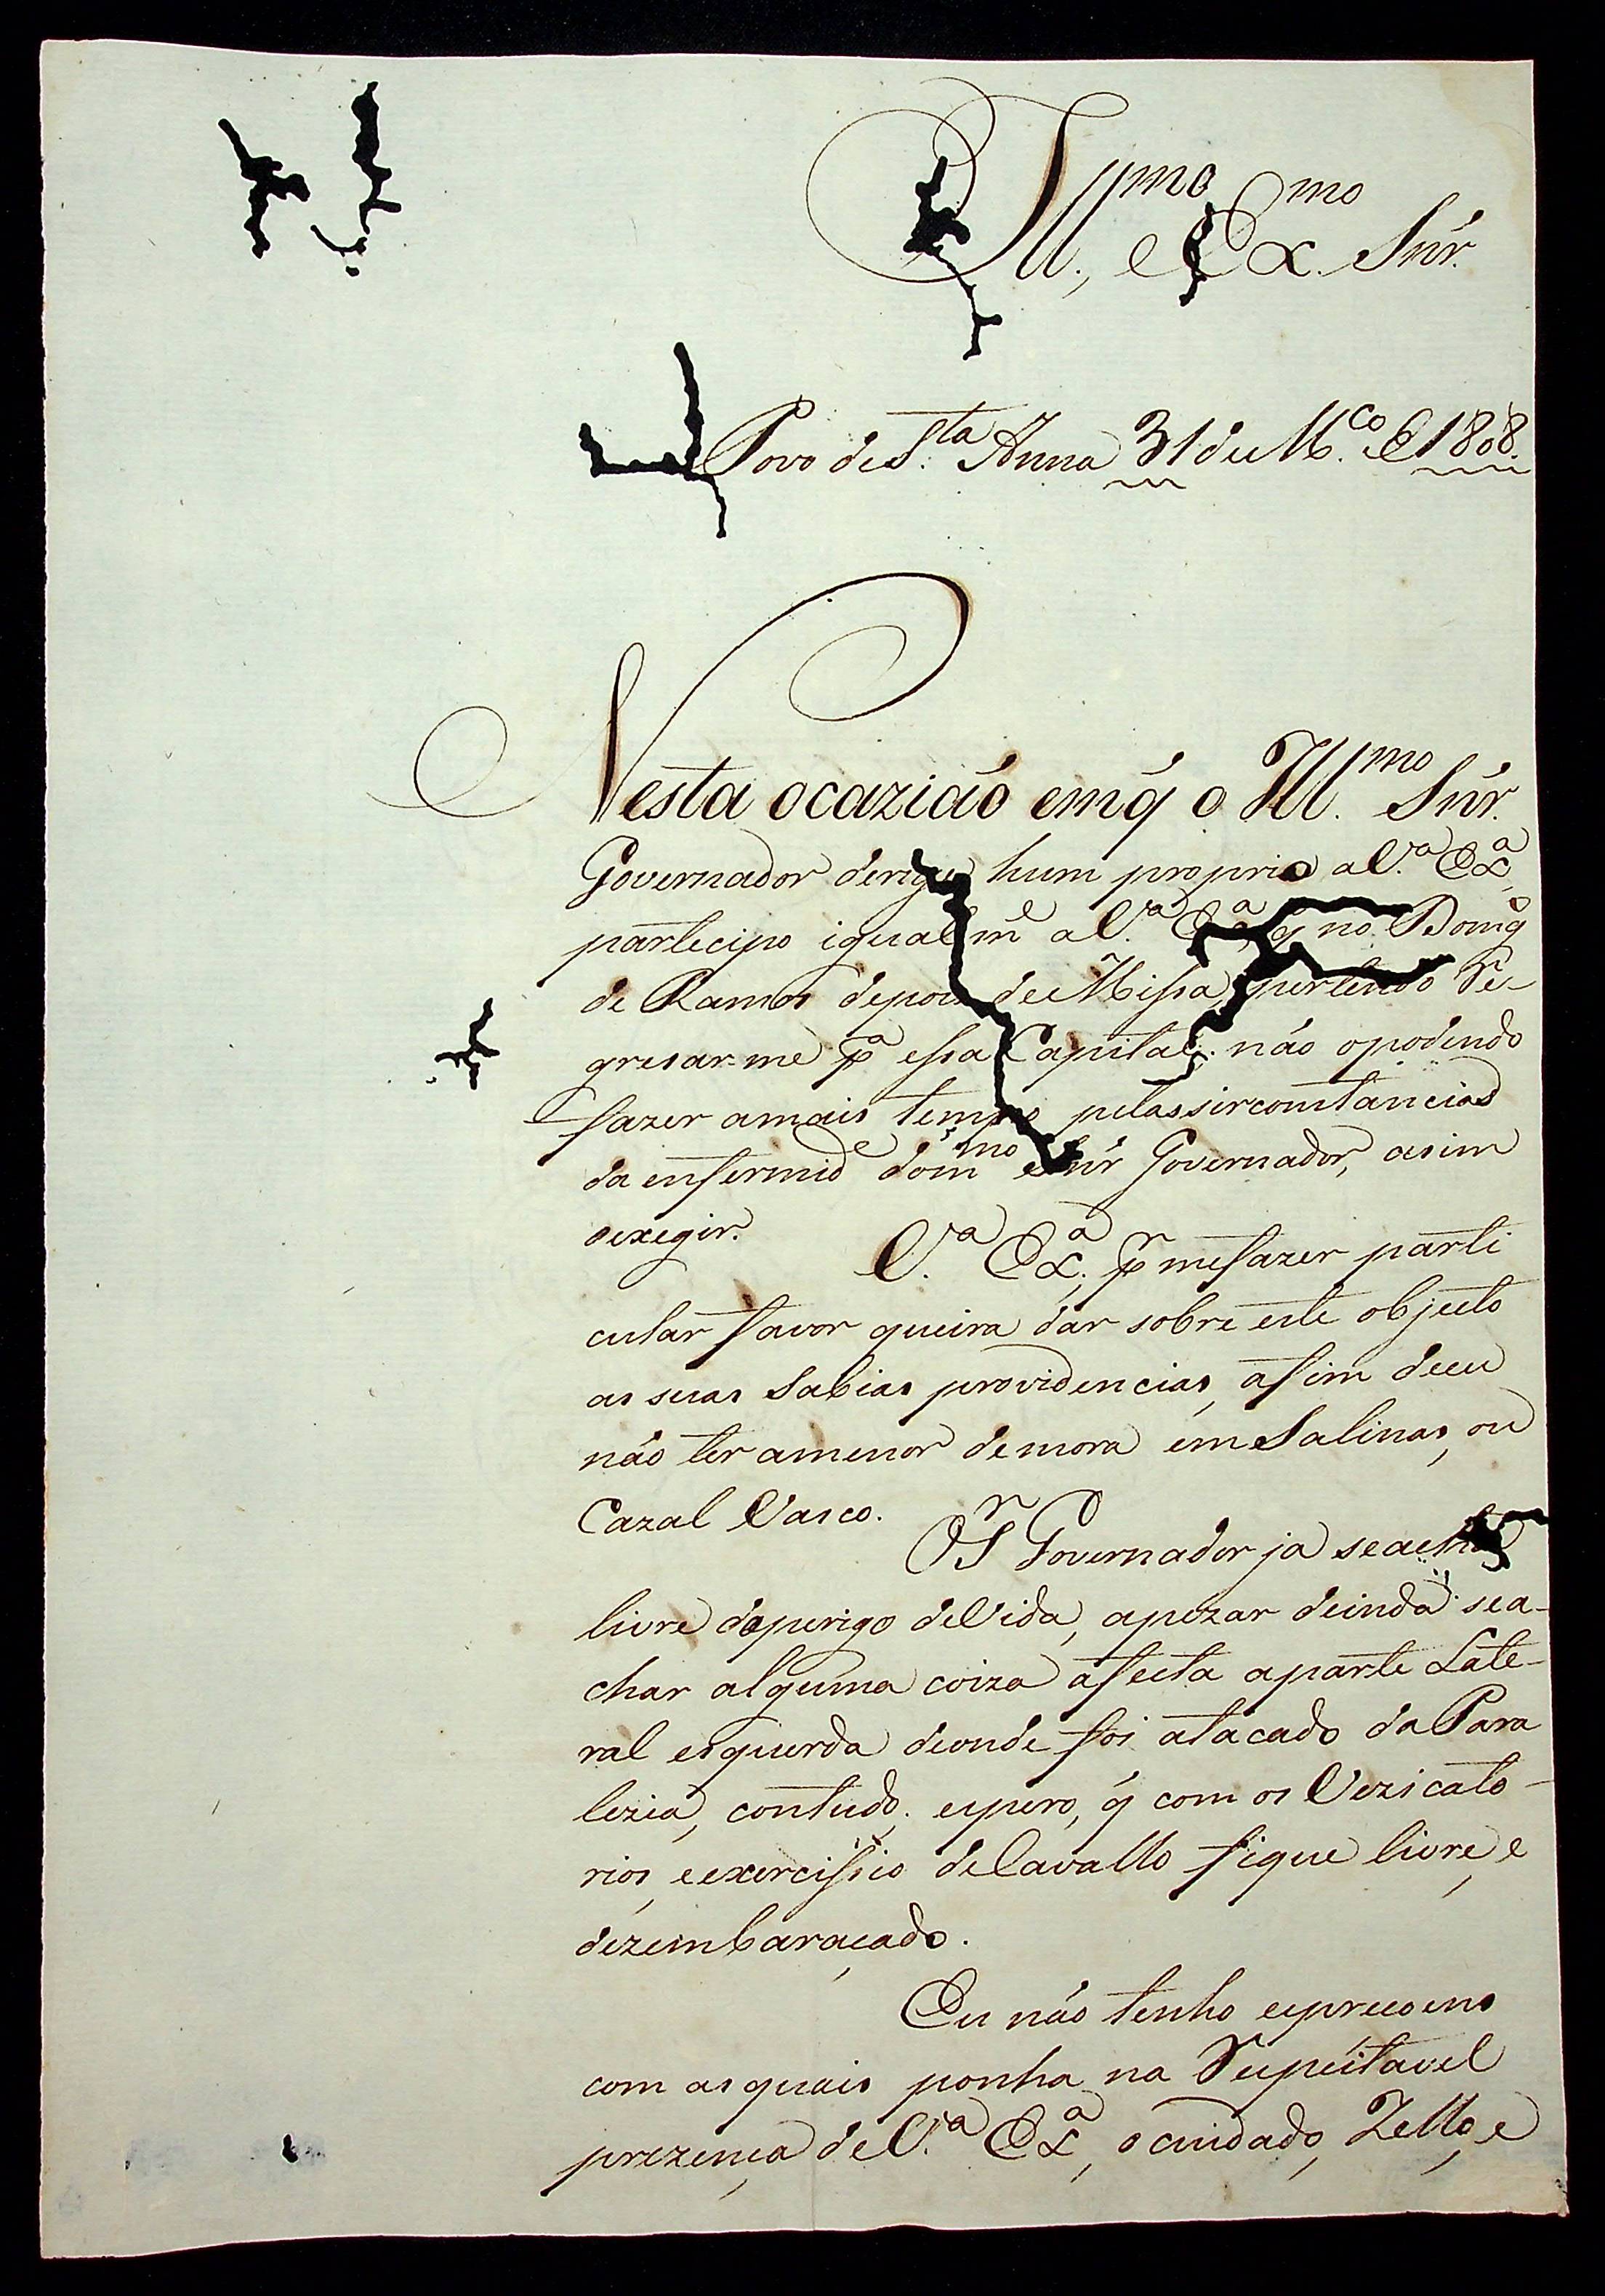 Ill.mo, e Ex.mo Snr.
Povo de S.ta Anna 31 de M.ço de 1808.
Nesta ocazião em q̃ o Ill.mo Snr.
Governador derige hum proprio a V.a Ex.a
partecipo igualm.e a V.a Ex.a q̃ no Domg.o
de Ramos depois de Missa, pertendo re-
gresar-me p.a essa Capital; não o podendo
fazer a mais tempo pelas sircomtancias
da enfermid.e do m.mo Snr Governador, asim
o exegir.
V.a Ex.a, p.r me fazer parti
cular favor queira dar sobre este objecto
as suas Sabias providencias, afim de eu
não ter a menor demora em Salinas, ou
Cazal Vasco.
O S.r Governador ja se acha
livre do perigo de Vida, apezar de inda se a-
char alguma coiza afecta a parte Late-
ral esquerda deonde foi atacado da Para
lezia, contudo, espero, q̃ com os Vezicato-
rios, e exercissio de Cavallo fique livre, e
dezembaraçado.
Eu não tenho expreçoens
com as quais ponha na respeitavel
prezença de V.a Ex.a, o cuidado, Zello, e